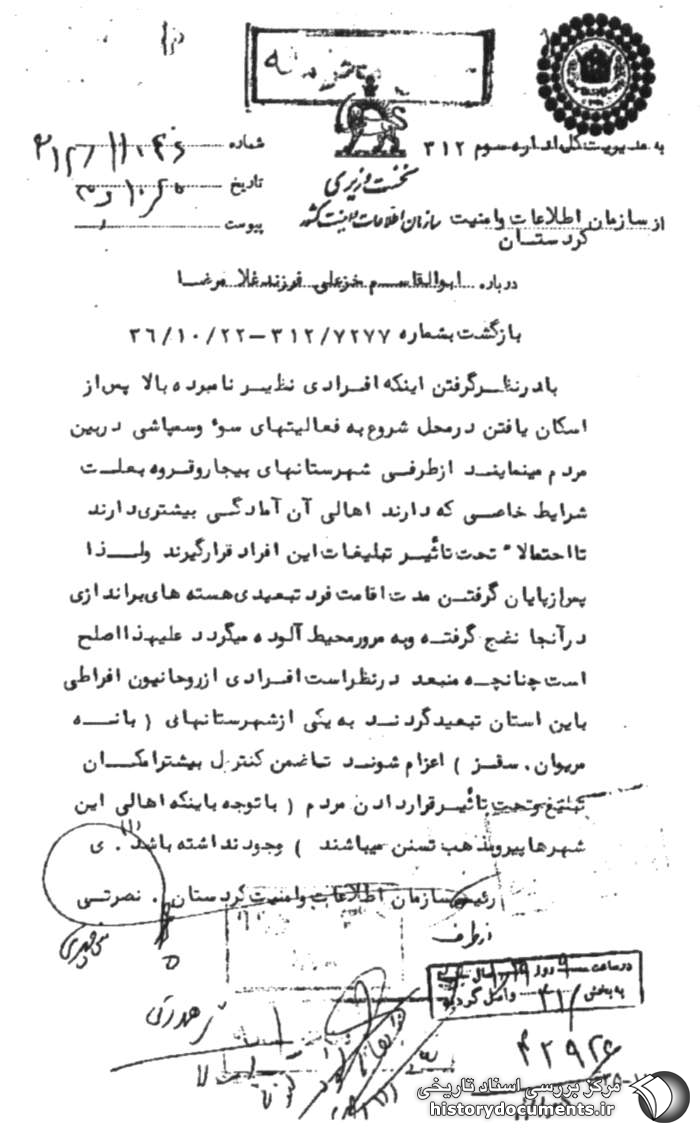 محرمانه
به مدیریت کل اداره سوم ۳۱۲
شماره
تاریخ
پیوست
نخست وزیری
سازمان اطلاعات و امنیت کشور
از سازمان اطلاعات وامنیت
کردستان
درباره ابوالقاسم خزعلی فرزند غلامرضا
بازگشت بشماره ۳۱۲/۷۲۷۷-۳۶/۱۰/۲۲
بادرنظرگرفتن اینکه افرادی نظیر نامبرده بالا پس از
اسکان یافتن درمحل شروع به فعالیتهای سوء وسمپاشی دربین
مردم مینمایند ازطرفی شهرستانهای بیجاروقروه بعلت
شرایط خاصی که دارند اهالی آن آمادگی بیشتری دارند
تااحتمالا" تحت تأثیر تبلیغات این افراد قرارگیرند ولذا
پس ازپایان گرفتن مدت اقامت فرد تبعیدی هسته های براندازی
درآنجا نضج گرفته وبه مرورمحیط آلوده میگردد علیهذا اصلح
است چنانچه منبعد درنظراست افرادی ازروحانیون افراطی
باین استان تبعید گردند به یکی ازشهرستانهای ( بانه
مریوان . سقز ) اعزام شوند تاضمن کنترل بیشتر امکان
تبلیغ وتحت تأثیر قراردادن مردم ( باتوجه باینکه اهالی این
شهرها پیرومذهب تسنن میباشند ) وجود نداشته باشد . ی
رئیس سازمان اطلاعات وامنیت کردستان . نصرتی
از طرف
درساعت ۹ روز
به بخش ۳۱۲ واصل گردید
۴۲۹۲۶
مرکز بررسی اسناد تاریخی
historydocuments.ir